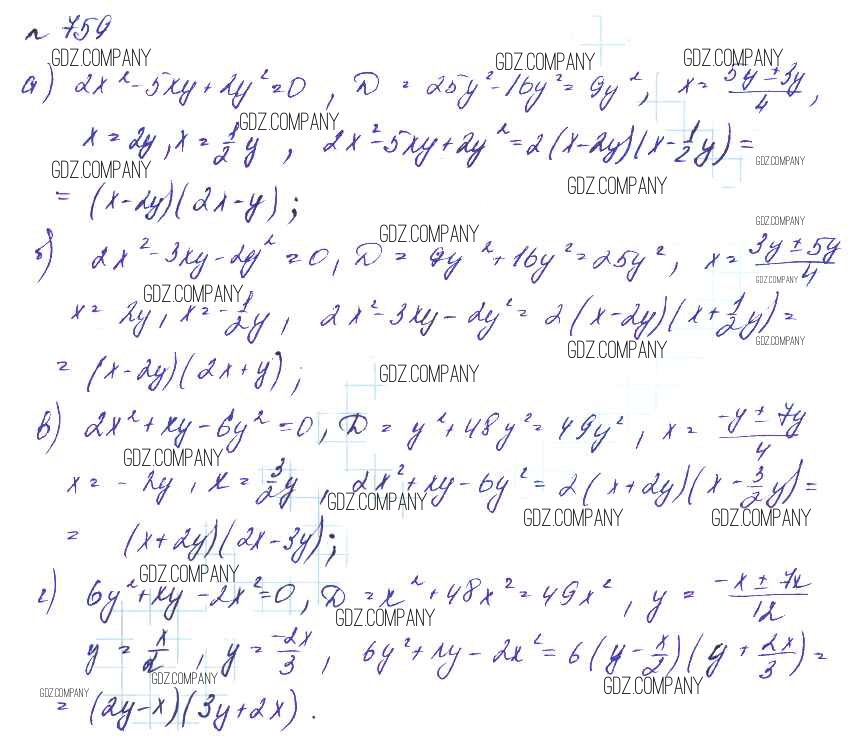 № 759
GDZ.COMPANY GDZ.COMPANY GDZ.COMPANY
а) 2x² - 5xy + 2y² = 0, D = 25y² - 16y² = 9y², x = (5y ± 3y)/4,
GDZ.COMPANY
x = 2y, x = 1/2 y, 2x² - 5xy + 2y² = 2(x - 2y)(x - 1/2 y) =
GDZ.COMPANY GDZ.COMPANY GDZ.COMPANY
= (x - 2y)(2x - y);
GDZ.COMPANY GDZ.COMPANY
б) 2x² - 3xy - 2y² = 0, D = 9y² + 16y² = 25y², x = (3y ± 5y)/4
GDZ.COMPANY GDZ.COMPANY
x = 2y, x = -1/2 y, 2x² - 3xy - 2y² = 2(x - 2y)(x + 1/2 y) =
GDZ.COMPANY GDZ.COMPANY
= (x - 2y)(2x + y);
GDZ.COMPANY
в) 2x² + xy - 6y² = 0, D = y² + 48y² = 49y², x = (-y ± 7y)/4
GDZ.COMPANY
x = -2y, x = 3/2 y, 2x² + xy - 6y² = 2(x + 2y)(x - 3/2 y) =
GDZ.COMPANY GDZ.COMPANY GDZ.COMPANY
= (x + 2y)(2x - 3y);
GDZ.COMPANY
г) 6y² + xy - 2x² = 0, D = x² + 48x² = 49x², y = (-x ± 7x)/12
GDZ.COMPANY
y = x/2, y = -2x/3, 6y² + xy - 2x² = 6(y - x/2)(y + 2x/3) =
GDZ.COMPANY GDZ.COMPANY GDZ.COMPANY
= (2y - x)(3y + 2x).